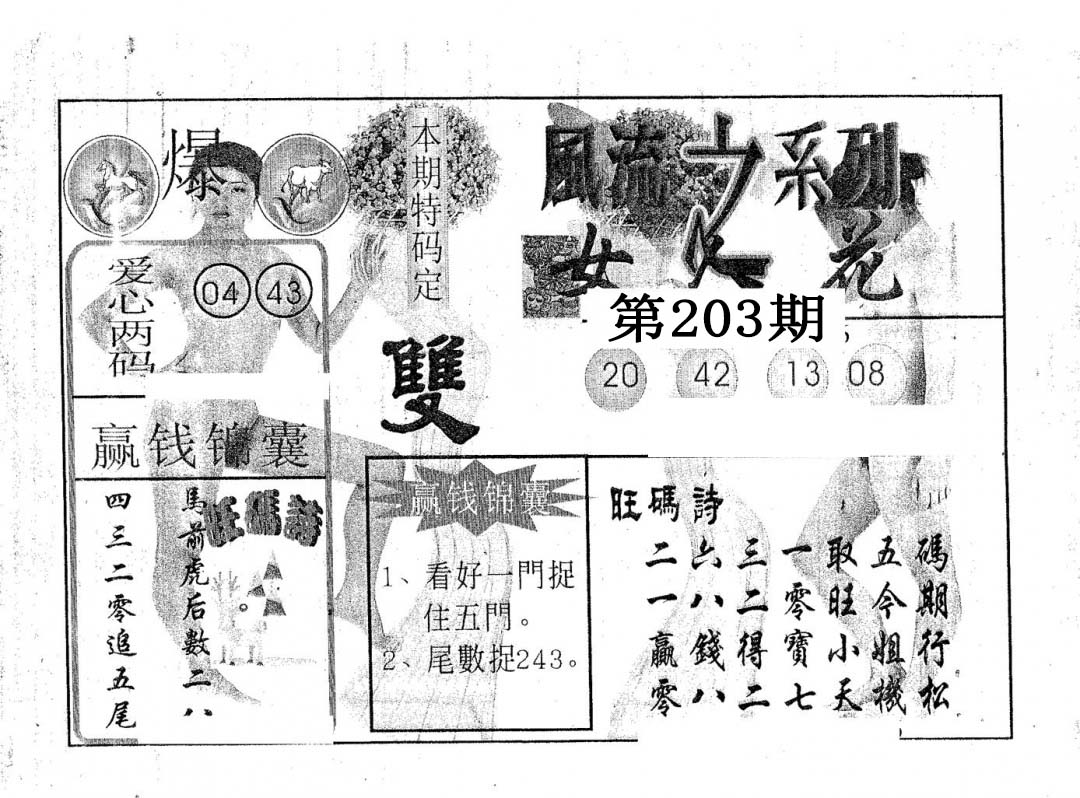 風流之系列
女人花
第203期
20 42 13 08
本期特码定
雙
爆
爱心两码
04 43
赢钱锦囊
旺碼詩
馬前虎后數二八
四三二零追五尾
赢钱锦囊
1、看好一門捉
住五門。
2、尾數捉243。
旺碼詩
碼期行松
五今姐機
取旺小天
一零寶七
三二得二
六八錢八
二一贏零